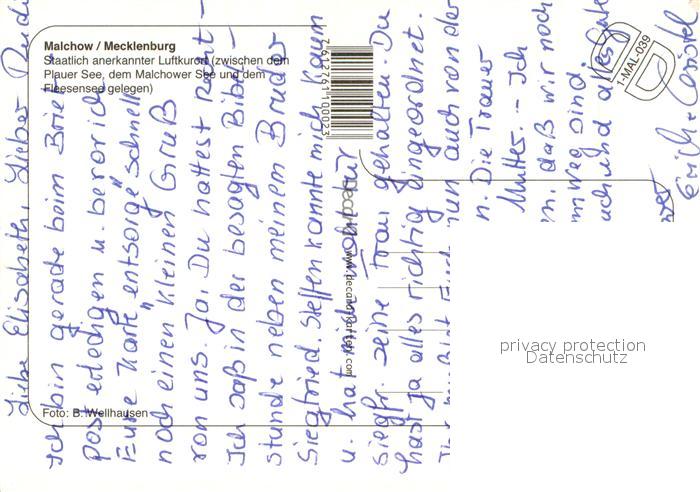 Malchow / Mecklenburg
Staatlich anerkannter Luftkurort (zwischen dem
Plauer See, dem Malchower See und dem
Fleesensee gelegen)
7612761100023
1-MAL-039
www.decandia.com
Foto: B. Wellhausen
privacy protection
Datenschutz
Liebe Elisabeth, Lieber Rudi
Ich bin gerade beim Brief
post erledigen u. bevor ich
Eure Karte "entsorge" schnell
noch einen kleinen Gruß
von uns. Ja, Du hattest Recht –
Ich saß in der besagten Bibel-
stunde neben meinem Bruder
Siegfried. Steffen kannte mich kaum
u. hat mich für
Siegfr. seine Frau gehalten. Du
hast ja alles richtig eingeordnet.
nun auch von der
n. Die Trauer
Mutter. – Ich
m, daß wir noch
m Weg sind.
euch und alles Gute
Erich Christel